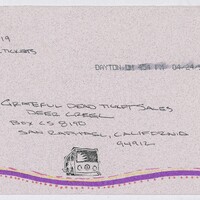 19
TICKETS
DAYTON OH 454 PM 04-24-
GRATEFUL DEAD TICKET SALES
DEER CREEK
BOX CS 8190
SAN RAFAEL, CALIFORNIA
94912